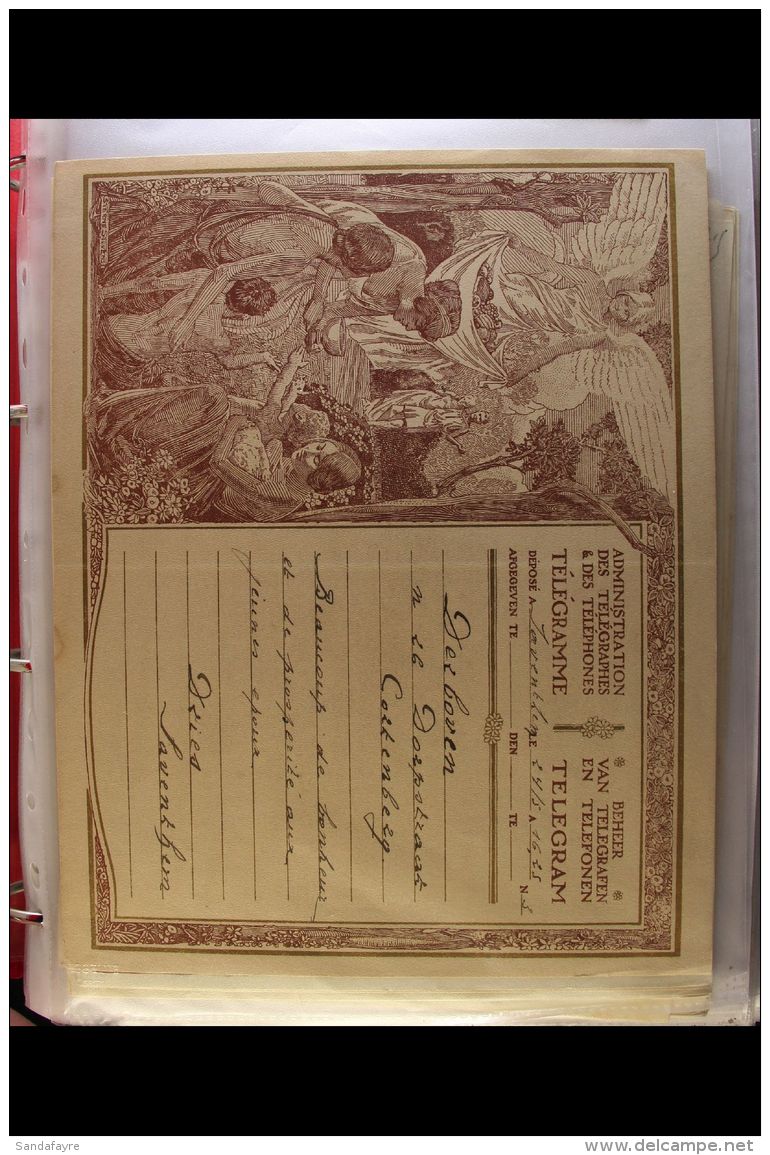 ADMINISTRATION
DES TÉLÉGRAPHES
& DES TÉLÉPHONES
BEHEER
VAN TELEGRAFEN
EN TELEFONEN
TÉLÉGRAMME TELEGRAM
DÉPOSÉ A Saventhem LE 24/5 A 16,25 N 3
AFGEGEVEN TE DEN TE
Derboven
n 26 Dorpstraat
Cortenberg
Beaucoup de bonheur
et de prosperité aux
jeunes epoux
Dries
Saventhem
Sandafayre
www.delcampe.net